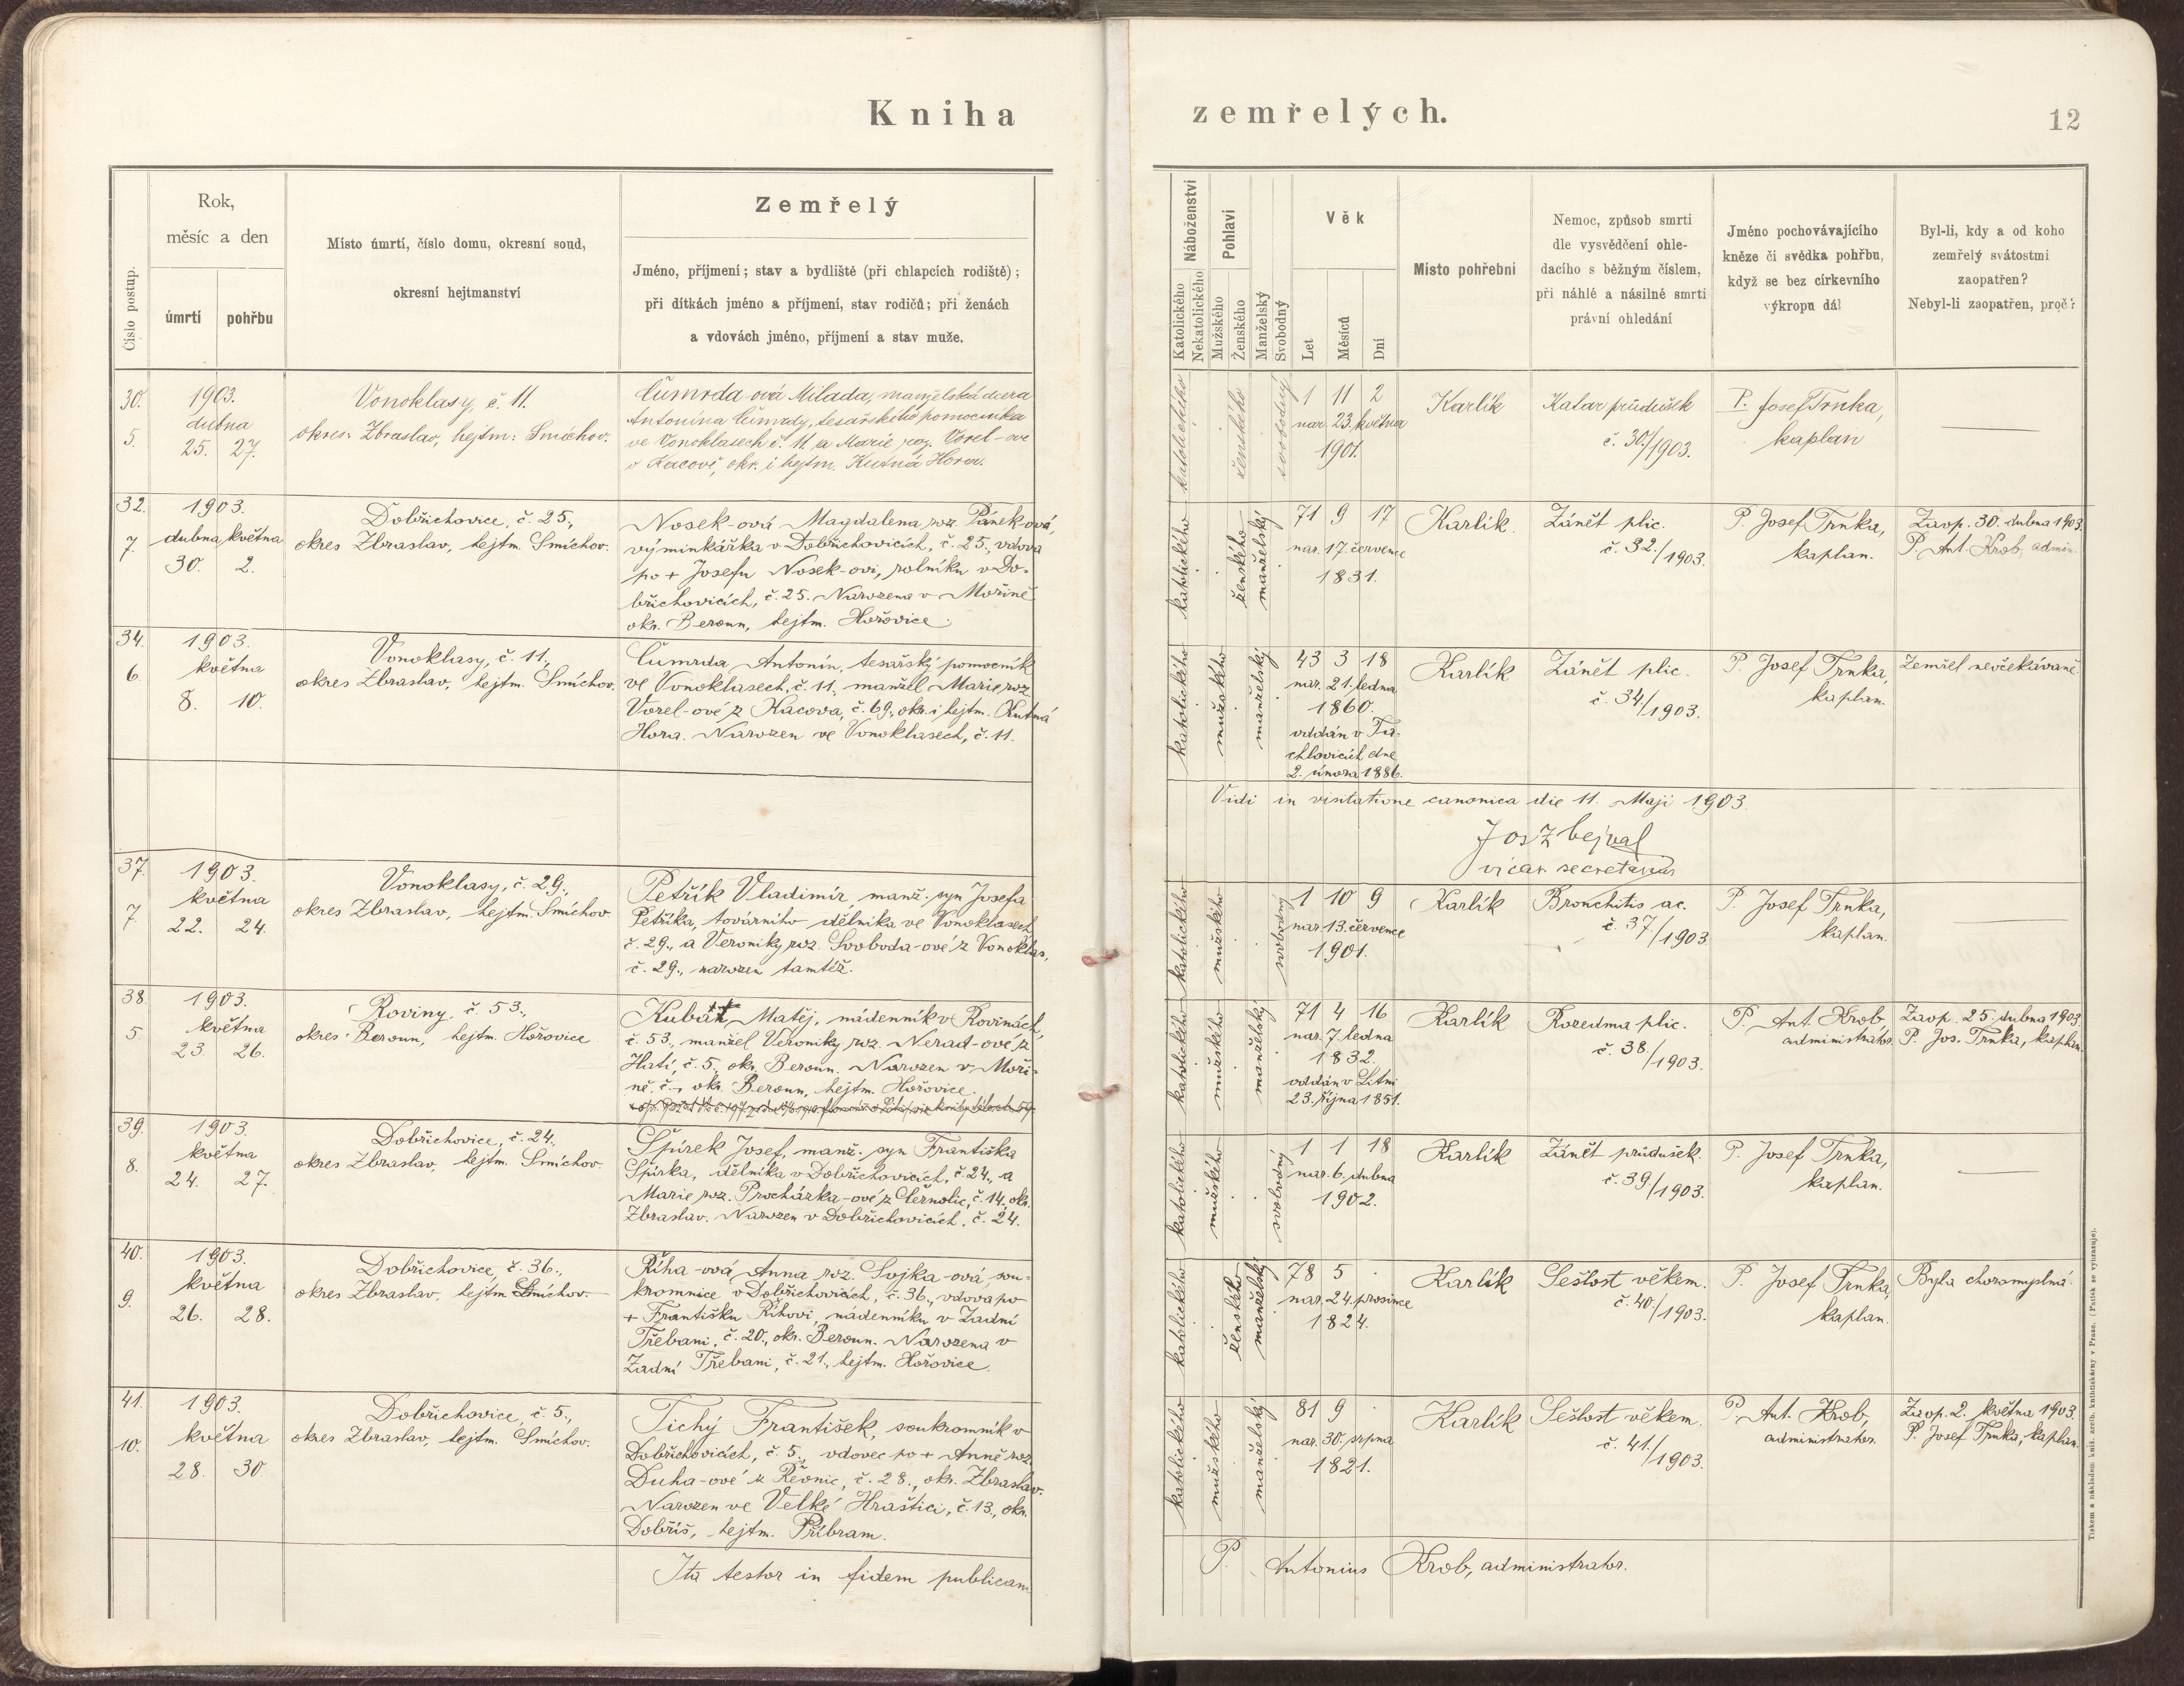 Kniha
zemřelých.
12
Číslo postup.
Rok,
měsíc a den
úmrtí
pohřbu
Místo úmrtí, číslo domu, okresní soud,
okresní hejtmanství
Zemřelý
Jméno, příjmení; stav a bydliště (při chlapcích rodiště);
při dítkách jméno a příjmení, stav rodičů; při ženách
a vdovách jméno, příjmení a stav muže.
Náboženství
Katolického
Nekatolického
Pohlaví
Mužského
Ženského
Manželský
Svobodný
Věk
Let
Měsíců
Dní
Místo pohřební
Nemoc, způsob smrti
dle vysvědčení ohle-
dacího s běžným číslem,
při náhlé a násilné smrti
právní ohledání
Jméno pochovávajícího
kněze či svědka pohřbu,
když se bez církevního
výkropu dál
Byl-li, kdy a od koho
zemřelý svátostmi
zaopatřen?
Nebyl-li zaopatřen, proč?
30.
5.
1903.
dubna
25. 27.
Vonoklasy, č. 11.
okres: Zbraslav, hejtm: Smíchov.
Čumrda-ová Milada, manželská dcera
Antonína Čumrdy, tesařského pomocníka
ve Vonoklasech č. 11. a Marie roz. Vorel-ové
v Kacově, okr. i hejtm. Kutná Hora.
katolického
ženského
svobodný
1 11 2
nar. 23. května
1901.
Karlík
Katar průdušek
č. 30./1903.
P. Josef Trnka,
kaplan
32.
7.
1903.
dubna května
30. 2.
Dobřichovice, č. 25.,
okres Zbraslav, hejtm. Smíchov.
Nosek-ová Magdalena roz. Pánek-ová,
výminkářka v Dobřichovicích, č. 25., vdova
po + Josefu Nosek-ovi, rolníku v Do-
břichovicích, č. 25. Narozena v Mořině
okr. Beroun, hejtm. Hořovice.
katolického
ženského
manželský
71 9 17
nar. 17. července
1831.
Karlík.
Zánět plic.
č. 32./1903.
P. Josef Trnka,
kaplan.
Zaop. 30. dubna 1903.
P. Ant. Krob, admin.
34.
6.
1903.
května
8. 10.
Vonoklasy, č. 11.,
okres Zbraslav, hejtm. Smíchov.
Čumrda Antonín, tesařský pomocník
ve Vonoklasech, č. 11., manžel Marie roz.
Vorel-ové z Kacova, č. 69., okr. i hejtm. Kutná
Hora. Narozen ve Vonoklasech, č. 11.
katolického
mužského
manželský
43 3 18
nar. 21. ledna
1860.
oddán v Tu-
chlovicích dne
2. února 1886.
Karlík
Zánět plic.
č. 34./1903.
P. Josef Trnka,
kaplan.
Zemřel neočekávaně.
Vidi in visitatione canonica die 11. Maji 1903.
Jos Zbejval
vicar. secretarius
37.
7.
1903.
května
22. 24.
Vonoklasy, č. 29.,
okres Zbraslav, hejtm. Smíchov
Petřík Vladimír, manž. syn Josefa
Petříka, továrního dělníka ve Vonoklasech
č. 29., a Veroniky roz. Svoboda-ové z Vonoklas,
č. 29., narozen tamtéž.
katolického
mužského
svobodný
1 10 9
nar. 13. července
1901.
Karlík
Bronchitis ac.
č. 37/1903
P. Josef Trnka,
kaplan.
38.
5.
1903.
května
23. 26.
Roviny, č. 53.,
okres: Beroun, hejtm. Hořovice
Kubát, Matěj, nádenník v Rovinách,
č. 53., manžel Veroniky roz. Nerad-ové z
Hatí, č. 5., okr. Beroun. Narozen v Moři-
ně, č. -, okr. Beroun, hejtm. Hořovice.
katolického
mužského
manželský
71 4 16
nar. 7. ledna
1832.
oddán v Litni
23. října 1851.
Karlík
Rozedma plic.
č. 38./1903.
P. Ant. Krob
administrátor.
Zaop. 25. dubna 1903.
P. Jos. Trnka, kaplan.
39.
8.
1903.
května
24. 27.
Dobřichovice, č. 24.,
okres Zbraslav, hejtm. Smíchov.
Špírek Josef, manž. syn Františka
Špírka, dělníka v Dobřichovicích, č. 24., a
Marie roz. Procházka-ové z Černolic, č. 14., okr.
Zbraslav. Narozen v Dobřichovicích, č. 24.
katolického
mužského
svobodný
1 1 18
nar. 6. dubna
1902.
Karlík
Zánět průdušek.
č. 39./1903.
P. Josef Trnka,
kaplan.
40.
9.
1903.
května
26. 28.
Dobřichovice, č. 36.,
okres Zbraslav, hejtm Smíchov.
Říha-ová Anna roz. Sojka-ová, sou-
kromnice v Dobřichovicích, č. 36., vdova po
+ Františku Říhovi, nádenníku v Zadní
Třebani, č. 20., okr. Beroun. Narozena v
Zadní Třebani, č. 21., hejtm. Hořovice.
katolického
ženského
manželský
78 5 .
nar. 24. prosince
1824.
Karlík
Sešlost věkem.
č. 40./1903.
P. Josef Trnka,
kaplan.
Byla choromyslná.
41.
10.
1903.
května
28. 30.
Dobřichovice, č. 5.,
okres Zbraslav, hejtm. Smíchov.
Tichý František, soukromník v
Dobřichovicích, č. 5., vdovec po + Anně roz.
Duha-ové z Řevnic, č. 28., okr. Zbraslav.
Narozen ve Velké Hraštici, č. 13., okr.
Dobříš, hejtm. Příbram.
katolického
mužského
manželský
81 9 .
nar. 30. srpna
1821.
Karlík
Sešlost věkem.
č. 41./1903.
P. Ant. Krob,
administrator.
Zaop. 2. května 1903.
P. Josef Trnka, kaplan.
Ita testor in fidem publicam
P. Antonius Krob, administrator.
Tiskem a nákladem kníž. arcib. knihtiskárny v Praze. (Patisk se vyhrazuje).